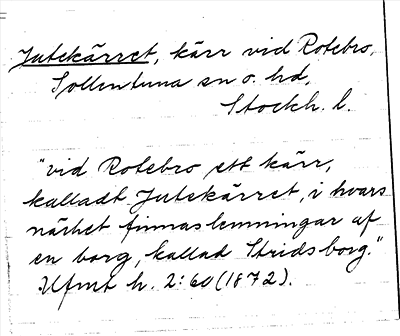 Jutekärret, kärr vid Rotebro,
Sollentuna sn o. hd,
Stockh. l.
"vid Rotebro ett kärr,
kalladt Jutekärret, i hvars
närhet finnas lemningar af
en borg, kallad Stridsborg."
Ufmt h. 2: 60 (1872).